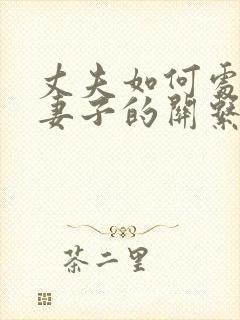 丈夫如何處
妻子的關繫
茶二里